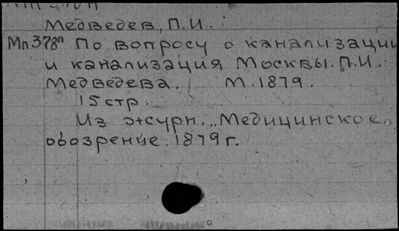 Медведев, П.И.
Мп378п По вопросу о канализации
и канализация Москвы. П.И.
Медведева. М. 1879.
15 стр.
Из журн. „Медицинское
обозрение. 1879 г.